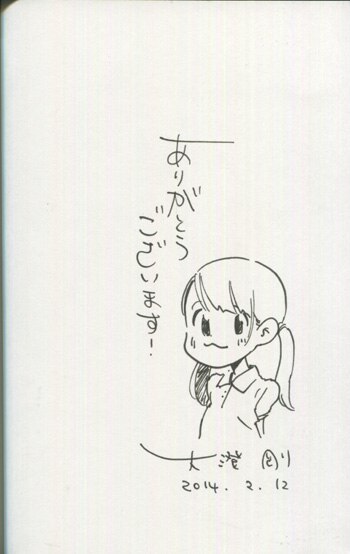 ありがとう
ございます!
大澄 剛
2014. 2. 12